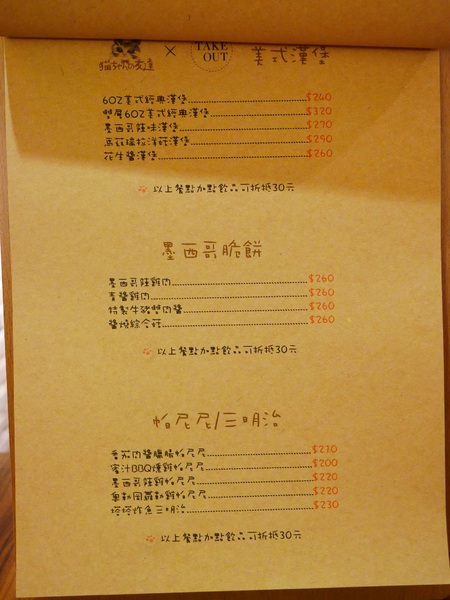 貓ちゃんの友達 × TAKE OUT 美式漢堡
6OZ美式經典漢堡 $240
雙層6OZ美式經典漢堡 $320
墨西哥辣味漢堡 $270
馬茲瑞拉洋菇漢堡 $290
花生醬漢堡 $260
以上餐點加點飲品可折抵30元
墨西哥脆餅
墨西哥辣雞肉 $260
青醬雞肉 $260
特製牛磯蟹肉醬 $260
醬燒綜合菇 $260
以上餐點加點飲品可折抵30元
帕尼尼/三明治
番茄肉醬臘腸帕尼尼 $210
蜜汁BBQ燻雞帕尼尼 $200
墨西哥辣雞帕尼尼 $220
奧勒岡羅勒雞帕尼尼 $220
塔塔炸魚三明治 $230
以上餐點加點飲品可折抵30元